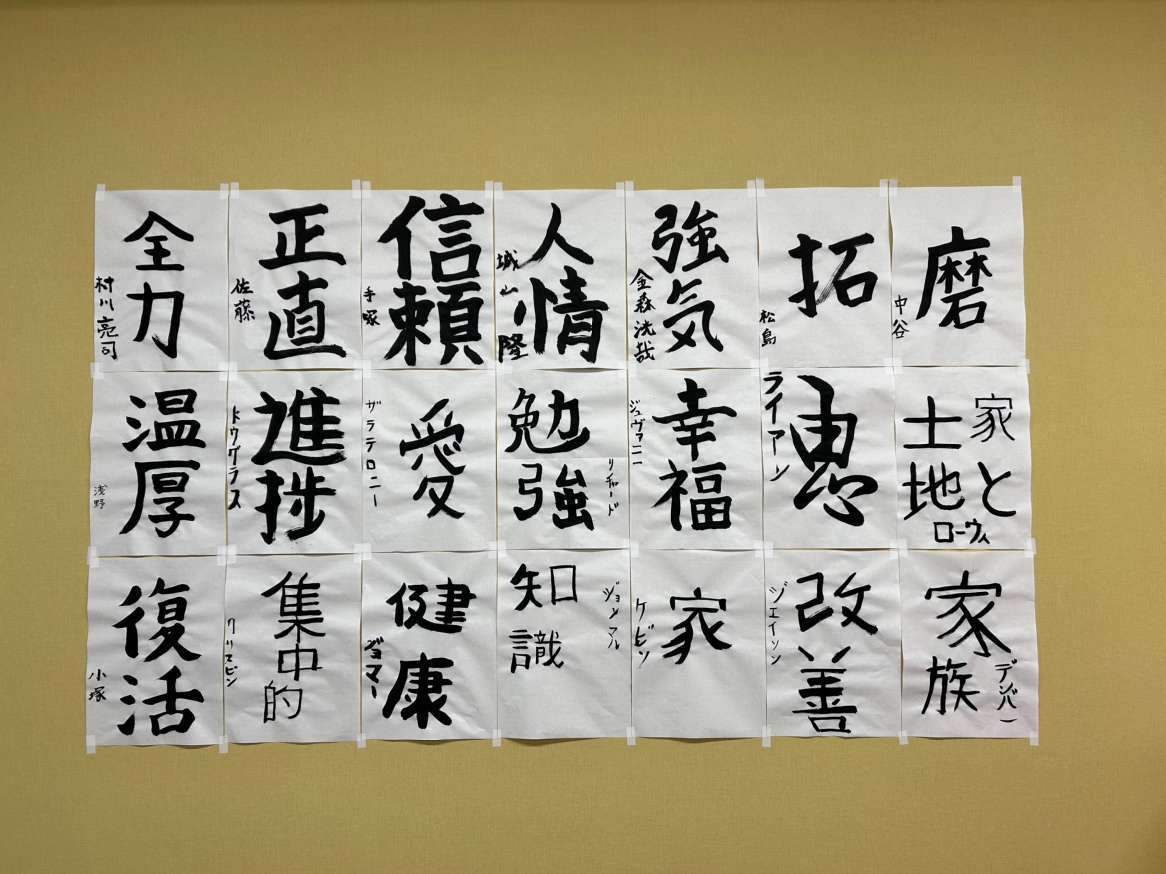 全力
村川亮司
正直
佐藤
信頼
手塚
人情
城山隆
強気
金森洸哉
拓
松島
磨
中谷
温厚
浅野
進捗
ドウグラス
愛
ザラテロニー
勉強
リチャード
幸福
ジュヴァニー
恵
ライアン
家と
土地
ローウィ
復活
小塚
集中的
クリスピン
健康
ジョマー
知識
ジョンマル
家
ケビン
改善
ジェイソン
家族
デンバー